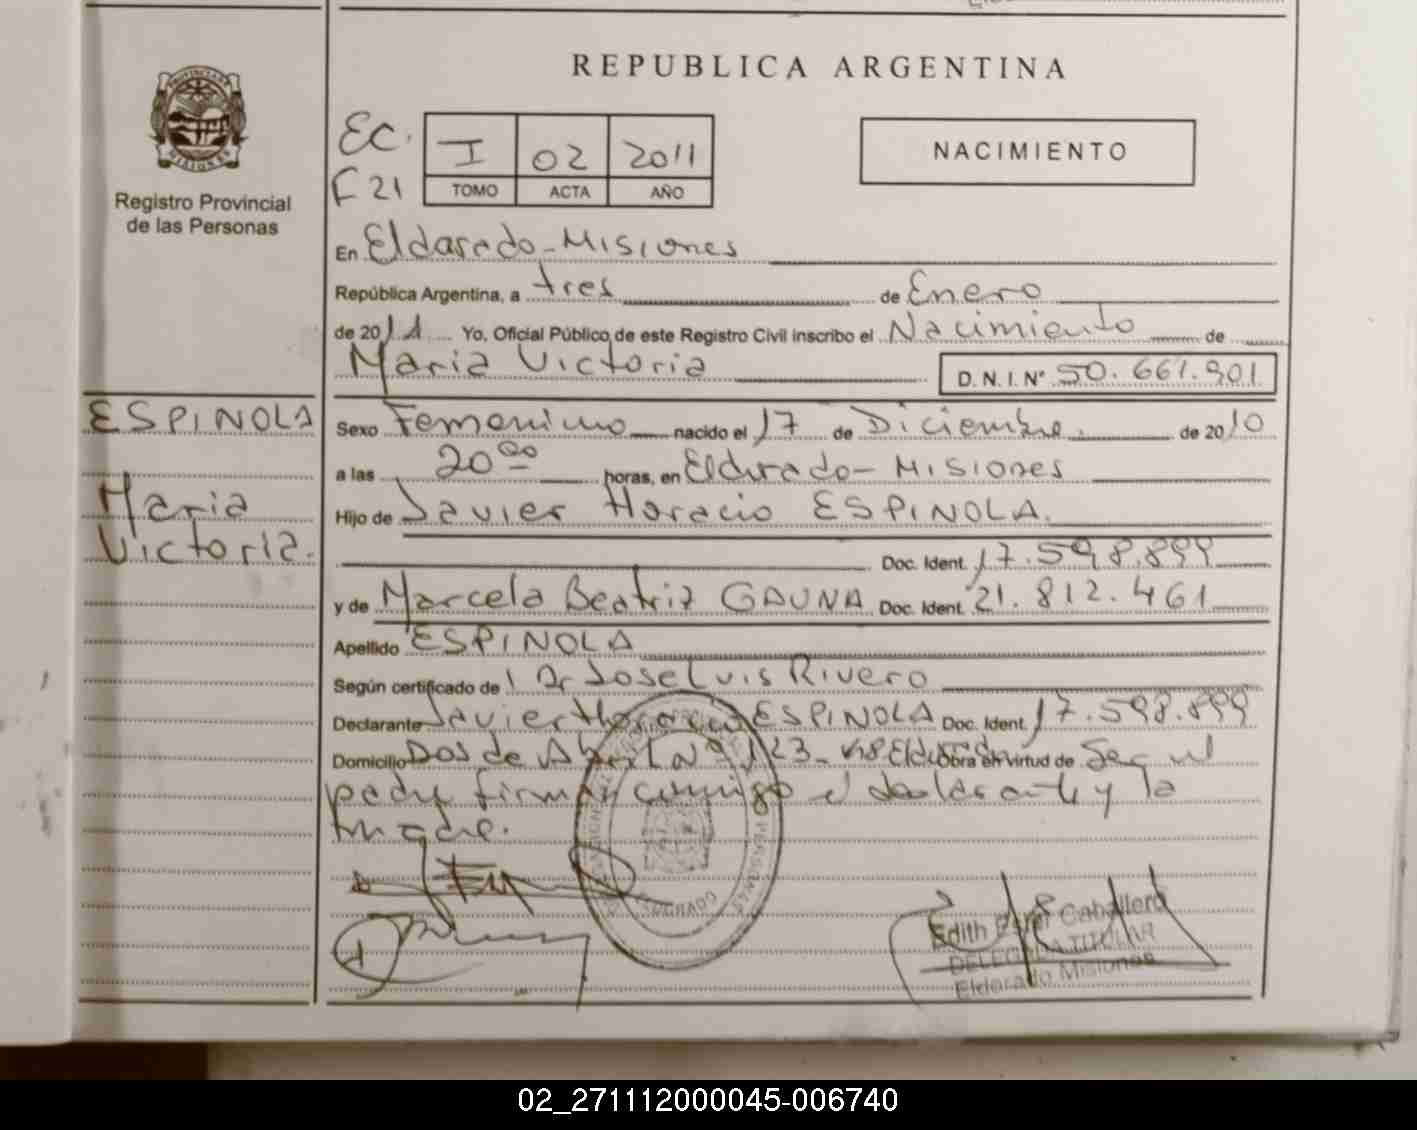 REPUBLICA ARGENTINA
PROVINCIA DE MISIONES
Registro Provincial
de las Personas
EC.
F 21
I 02 2011
TOMO ACTA AÑO
NACIMIENTO
En Eldorado - Misiones
República Argentina, a tres de Enero
de 2011 Yo, Oficial Público de este Registro Civil inscribo el Nacimiento de
Maria Victoria D.N.I. Nº 50.661.901
ESPINOLA
Maria
Victoria.
Sexo Femenino nacido el 17 de Diciembre. de 2010
a las 20 00 horas, en Eldorado - Misiones
Hijo de Javier Horacio ESPINOLA.
Doc. Ident. 17.598.899
y de Marcela Beatriz GAUNA Doc. Ident. 21.812.461
Apellido ESPINOLA
Según certificado de Dr Jose Luis Rivero
Declarante Javier Horacio ESPINOLA Doc. Ident. 17.598.899
Domicilio Dos de Abril Nº 123 - Eldorado Obra en virtud de
firman conmigo el declarante y la
madre.
ELDORADO
Edith Ester Caballero
DELEGADA TITULAR
Eldorado Misiones
02_271112000045-006740